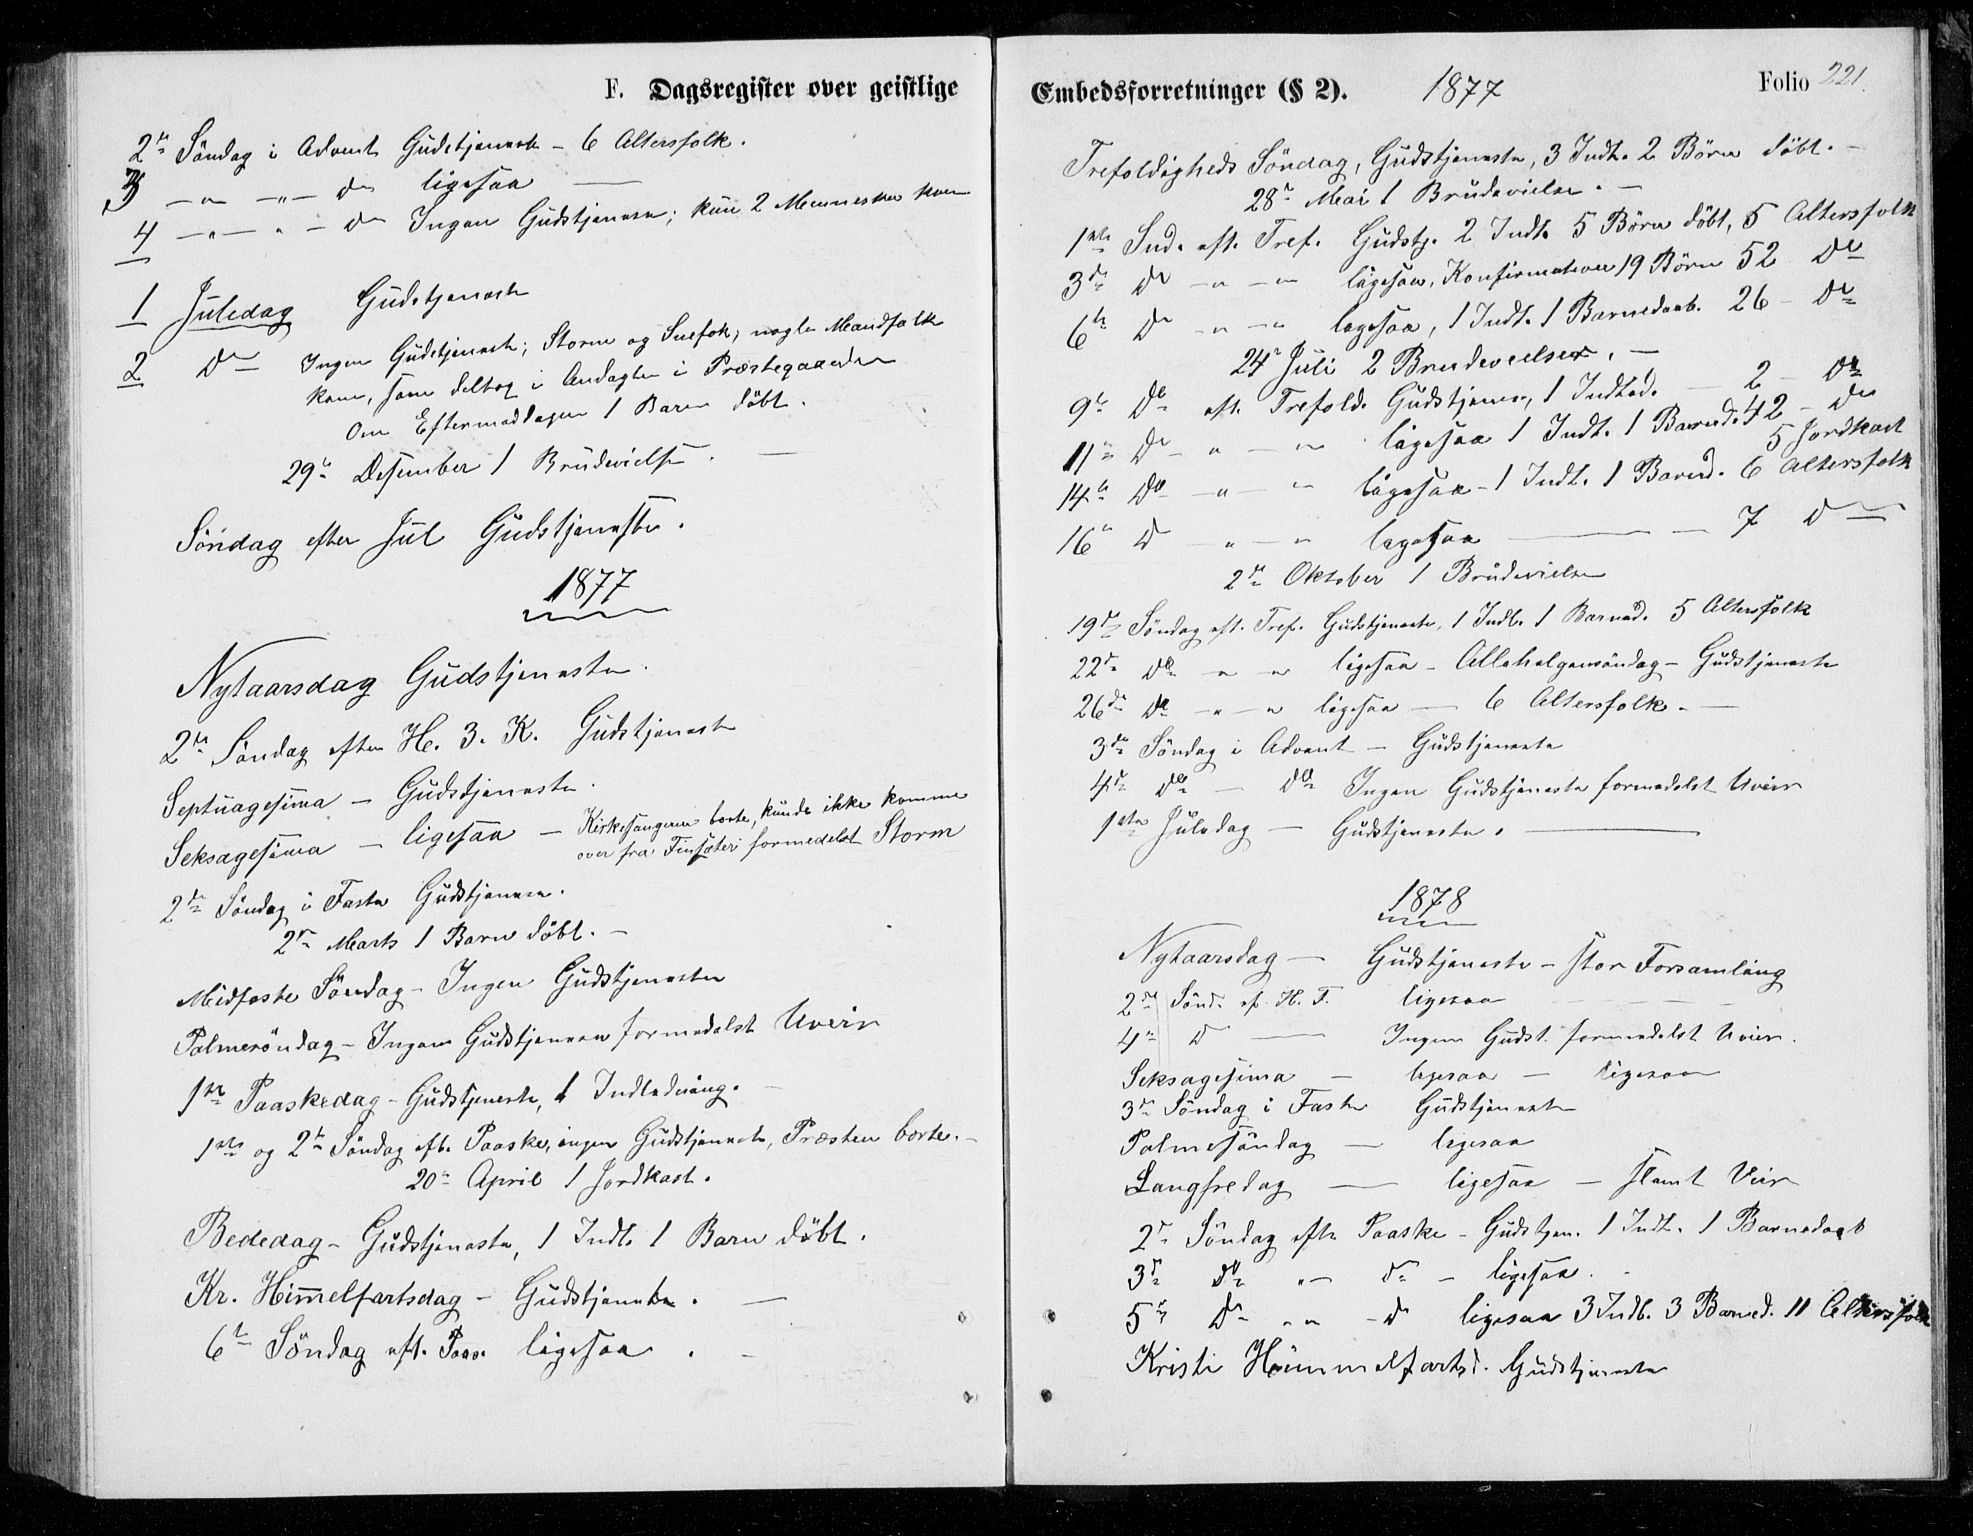 F. Dagsregister over geistlige
2de Söndag i Advent Gudstjeneste – 6 Altersfolk.
3 – " – " – do ligesaa —
4 – " – " – do Ingen Gudstjeneste; kun 2 Mennesker kom
1 Juledag Gudstjeneste
2 do Ingen Gudstjeneste; Storm og Snefok; nogle Mandfolk
kom, som deltog i Andagten i Præstegaarden
Om Eftermiddagen 1 Barn döbt.
29de Desember 1 Brudevielse. —
Söndag efter Jul Gudstjeneste.
1877
Nytaarsdag Gudstjeneste.
2den Söndag efter H. 3. K. Gudstjeneste
Septuagesima – Gudstjeneste.
Seksagesima – ligesaa – Kirkesangeren borte, kunde ikke komme
over fra Finsæter formedelst Storm
2den Söndag i Faste Gudstjeneste.
2den Marts 1 Barn döbt. –
Midfaste Söndag – Ingen Gudstjeneste
Palmesöndag – Ingen Gudstjeneste formedelst Uveir
1ste Paaskedag – Gudstjeneste, 1 Indledning. –
1ste og 2den Söndag eft. Paaske, ingen Gudstjeneste, Præsten borte. –
20de April 1 Jordkast.
Bededag – Gudstjeneste, 1 Indl. 1 Barn döbt.
Kr. Himmelfartsdag – Gudstjeneste. —
6te Söndag eft. Paas. ligesaa. –
Embedsforretninger (§ 2). 1877 Folio 221.
Trefoldigheds Söndag, Gudstjeneste, 3 Indl. 2 Börn döbt. –
28de Mai 1 Brudevielse. –
1ste Snd. eft. Tref. Gudstj. 2 Indl. 5 Börn döbt, 5 Altersfolk
3die do – " – " ligesaa, Konfirmation 19 Börn 52 do
6te do – " – " ligesaa, 1 Indl. 1 Barnedaab. 26 – do
24de Juli 2 Brudevielser. –
9de do eft. Trefold. Gudstjenes, 1 Indled. – 2 – do
11te do – " – " ligesaa 1 Indl. 1 Barned. 42 – do
5 Jordkast
14de do – " – " ligesaa – 1 Indl. 1 Barned. 6 Altersfolk
16de do " – " ligesaa — – 7 do
2den Oktober 1 Brudevielse
19de Söndag eft. Tref. Gudstjeneste, 1 Indl. 1 Barned. 5 Altersfolk
22de do – " – " ligesaa – Allehelgensöndag – Gudstjeneste
26de do – " – " ligesaa — 6 Altersfolk. —
3die Söndag i Advent – Gudstjeneste
4de do – do Ingen Gudstjeneste formedelst Uveir
1ste Juledag – Gudstjeneste. —
1878
Nytaarsdag – Gudstjeneste – stor Forsamling
2den Sönd. ef. H. T. ligesaa
4de do — Ingen Gudst. formedelst Uveir.
Seksagesima – ligesaa – ligesaa
3die Söndag i Faste Gudstjeneste
Palmesöndag — ligesaa
Langfredag — ligesaa – slemt Veir
2den Söndag efte Paaske – Gudstjen. 1 Indl. 1 Barnedaab
3die do " – do – ligesaa.
5te do " " – do ligesaa 3 Indl. 3 Barned. 11 Altersfolk
Kristi Himmelfartsd. Gudstjeneste